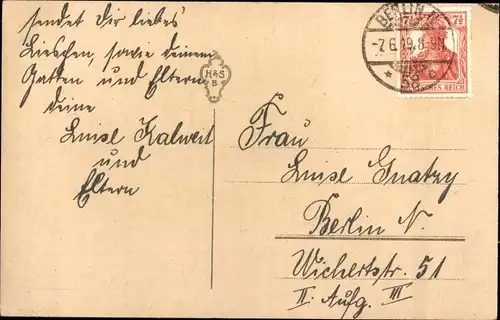 sendet Dir liebes
Lieschen, sowie deinem
Gatten und Eltern
deine
Luise Kalweit
und
Eltern
H&S
B
BERLIN N.
-7.6.19.8-9N.
* 58 c
7½ 7½
DEUTSCHES REICH
Frau
Luise Gnatzy
Berlin N.
Wichertstr. 51
II. Aufg. III